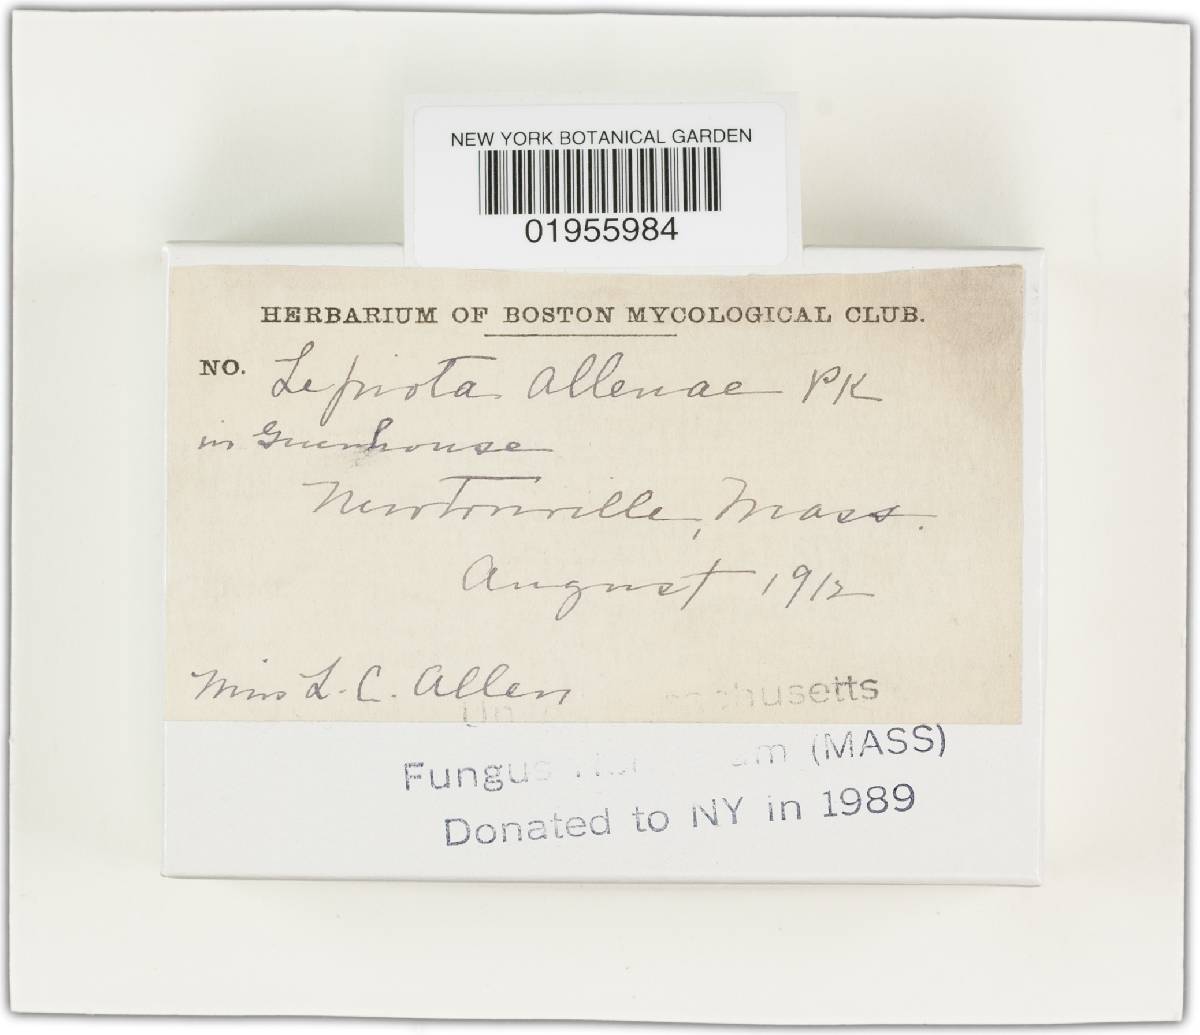 NEW YORK BOTANICAL GARDEN
01955984
HERBARIUM OF BOSTON MYCOLOGICAL CLUB.
NO. Lepiota Allenae PK
in Greenhouse
Newtonville, Mass.
August 1912
Miss L. C. Allen
chusetts
Fungus (MASS)
Donated to NY in 1989